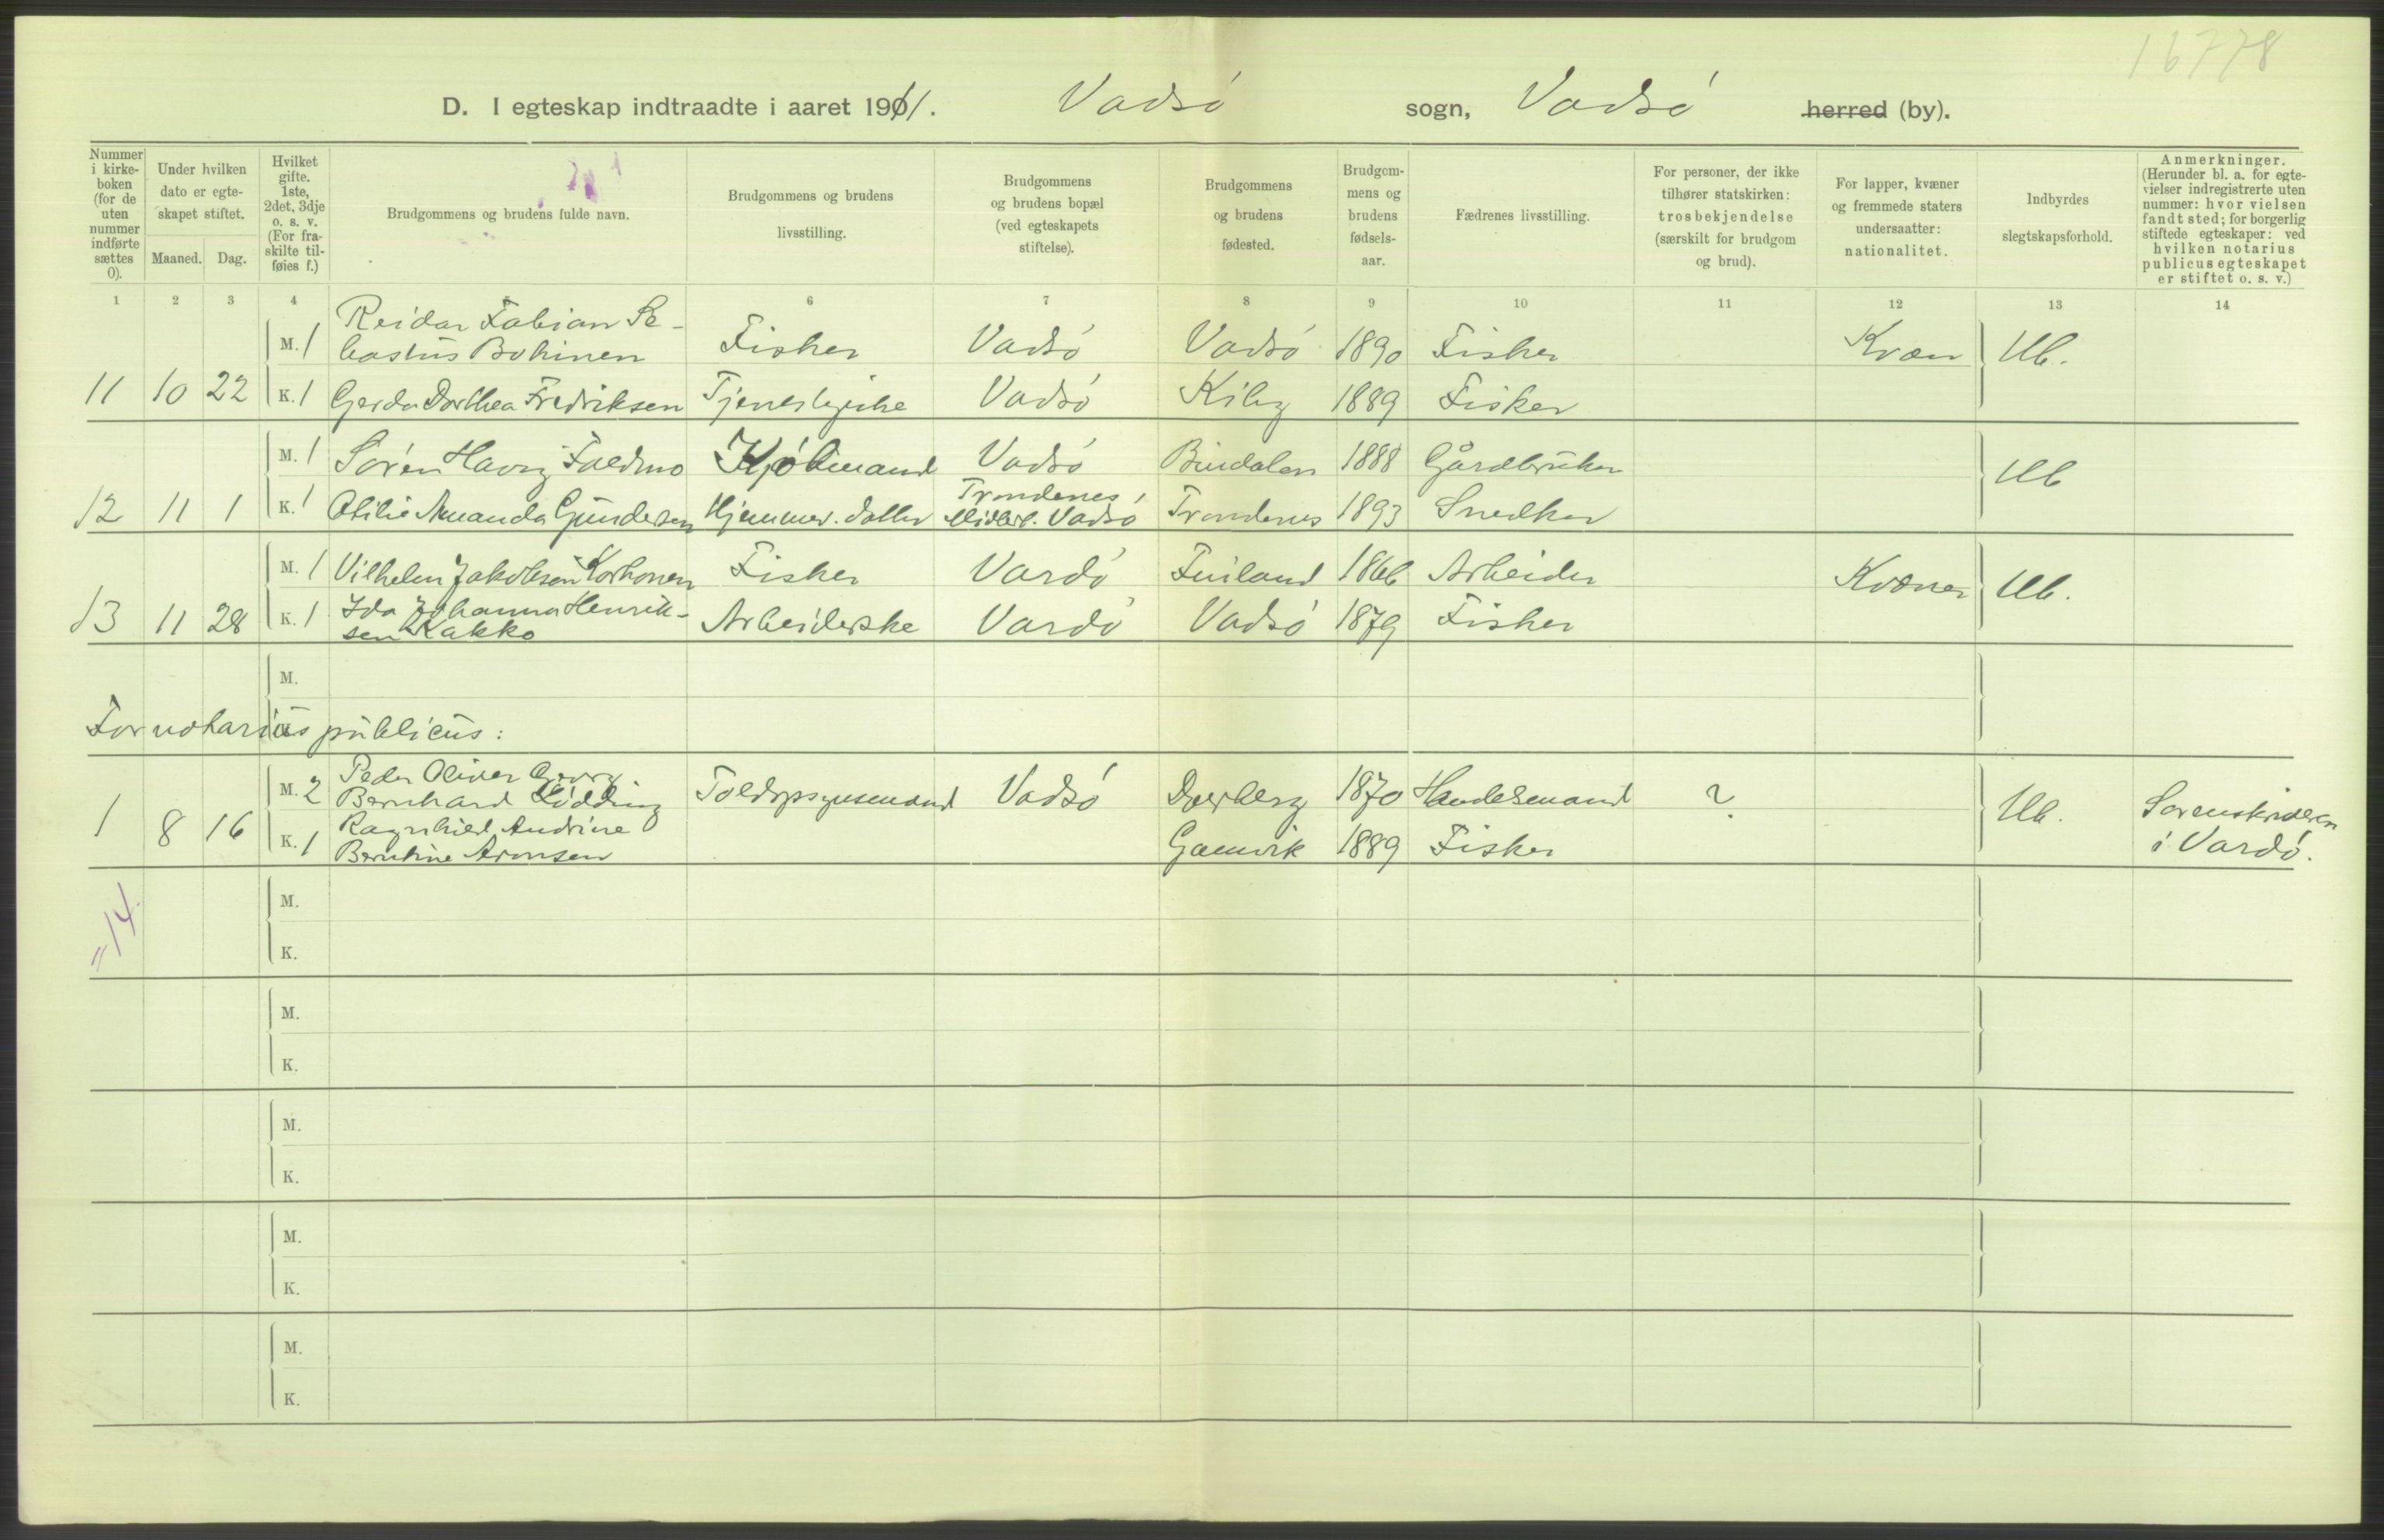 16778
D. I egteskap indtraadte i aaret 1911. Vadsö sogn, Vadsö herred (by).
Nummer i kirke-boken (for de uten nummer indførte sættes 0).
Under hvilken dato er egte-skapet stiftet.
Maaned. Dag.
Hvilket gifte. 1ste, 2det, 3dje o. s. v. (For fra-skilte til-føies f.)
Brudgommens og brudens fulde navn.
Brudgommens og brudens livsstilling.
Brudgommens og brudens bopæl (ved egteskapets stiftelse).
Brudgommens og brudens fødested.
Brudgom-mens og brudens fødsels-aar.
Fædrenes livsstilling.
For personer, der ikke tilhører statskirken: trosbekjendelse (særskilt for brudgom og brud).
For lapper, kvæner og fremmede staters undersaatter: nationalitet.
Indbyrdes slegtskapsforhold.
Anmerkninger. (Herunder bl. a. for egte-vielser indregistrerte uten nummer: hvor vielsen fandt sted; for borgerlig stiftede egteskaper: ved hvilken notarius publicus egteskapet er stiftet o. s. v.)
1 2 3 4 6 7 8 9 10 11 12 13 14
M. 1 Reidar Fabian Se-
bastus Bohinen Fisker Vadsö Vadsö 1890 Fisker Kvæn Ub.
11 10 22 K. 1 Gerda Dorthea Fredriksen Tjenestepike Vadsö Kiby 1889 Fisker
M. 1 Sören Havig Faldmo Kjöbmand Vadsö Bindalen 1888 Gårdbruker Ub
12 11 1 K. 1 Otilie Amanda Gundersen Hjemmev. datter Trondenes, Midlert. Vadsö Trondenes 1893 Snedker
M. 1 Vilhelm Jakobsen Korhonen Fisker Vardö Finland 1866 Arbeider Kvæner Ub.
13 11 28 K. 1 Ida Johanna Henrik-
sen Kakko Arbeiderske Vardö Vadsö 1879 Fisker
M.
For notarius publicus:
K.
M. 2 Peder Oliver Georg
Bernhard Lödding Toldopsynsmand Vadsö Dverberg 1870 Handelsmand ? Ub. Sorenskriveren
1 8 16 K. 1 Ragnhild Andrine
Berntine Aronsen Gamvik 1889 Fisker i Vardö.
M.
"14
K.
M.
K.
M.
K.
M.
K.
M.
K.